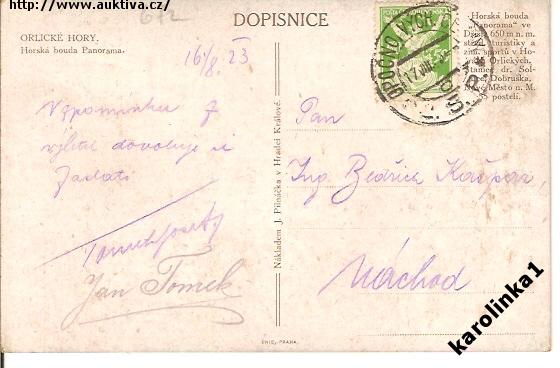 http://www.auktiva.cz
612
DOPISNICE
ORLICKÉ HORY.
Horská bouda Panorama.
16/8. 23
Horská bouda
"Panorama" ve
650 m n. m.
turistiky a
zim. sportů v Ho-
Orlických.
dr. Sol-
Dobruška,
Nové Město n. M.
postelí.
OPOČNO
Vzpomínku z
výletu dovoluje si
zaslati
Jan Tomek
Nákladem J. Pilnáčka v Hradci Králové.
Pan
Ing. Bedřich Kašpar,
Náchod
UNIE, PRAHA.
karolinka1